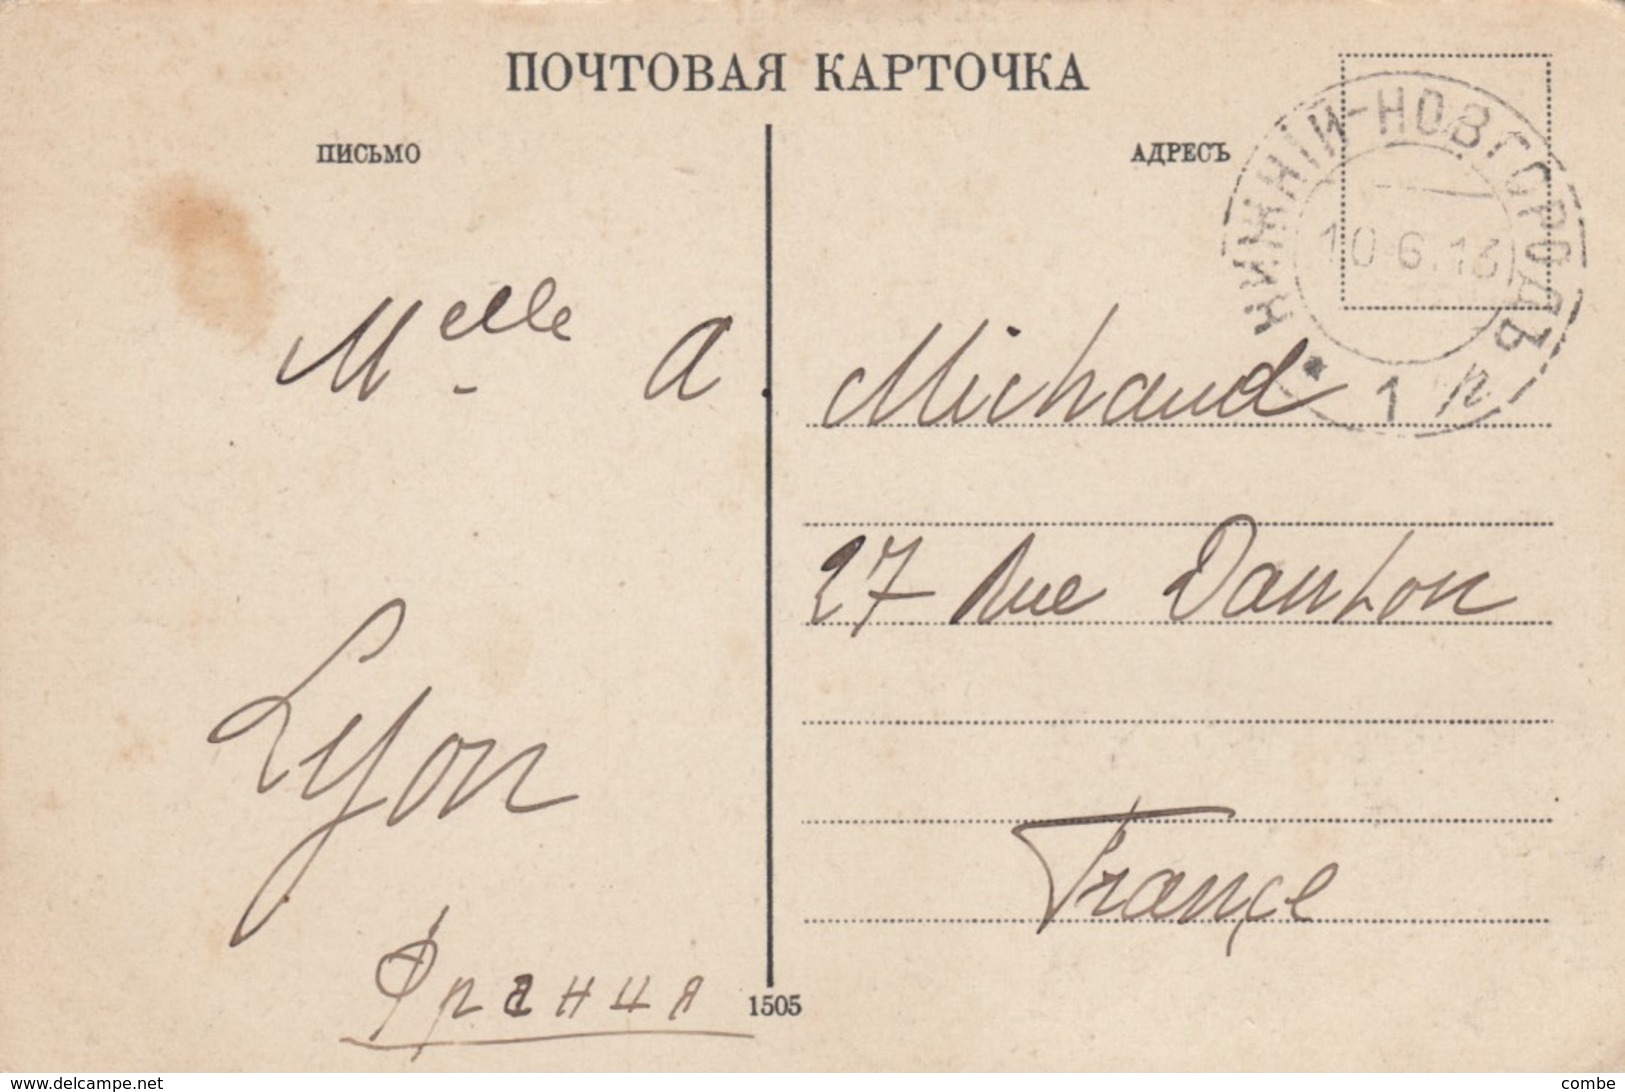 ПОЧТОВАЯ КАРТОЧКА
ПИСЬМО
АДРЕСЪ
НИЖНІЙ-НОВГОРОДЪ
10.6.13
* 1 п
Melle A. Michaud
27 Rue Danton
Lyon
France
Франция
1505
www.delcampe.net
combe